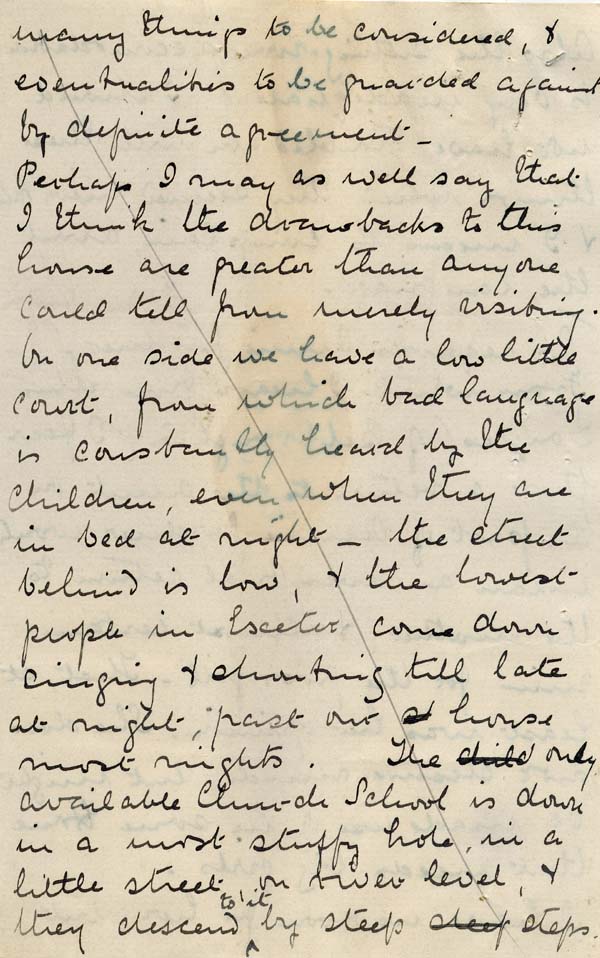 many things to be considered, &
eventualities to be guarded against
by definite agreement –
Perhaps I may as well say that
I think the drawbacks to this
house are greater than anyone
could tell from merely visiting.
On one side we have a low little
court, from which bad language
is constantly heard by the
children, even when they are
in bed at night – the street
behind is low, & the lowest
people in Exeter come down
singing & shouting till late
at night, past our house
most nights. The child only
available Church School is down
in a most stuffy hole, in a
little street, on river level, &
they descend to it by steep steep steps.